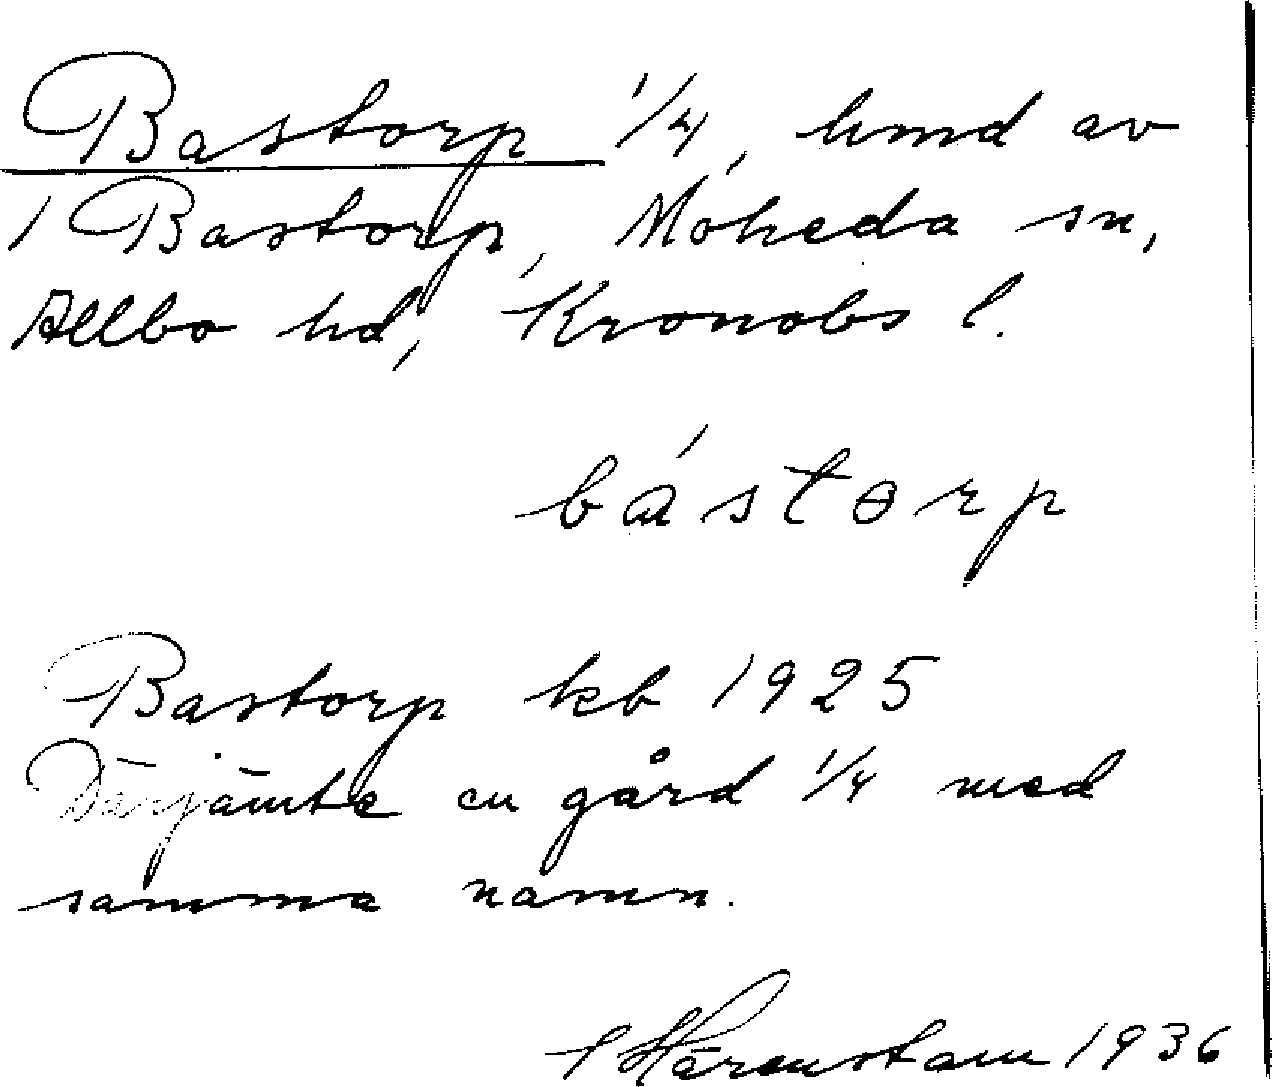 Bastorp 1/4, hmd av
1 Bastorp, Moheda sn,
Allbo hd, Kronobs l.
bástorp
Bastorp kb 1925
Därjämte en gård 1/4 med
samma namn.
Härenstam 1936